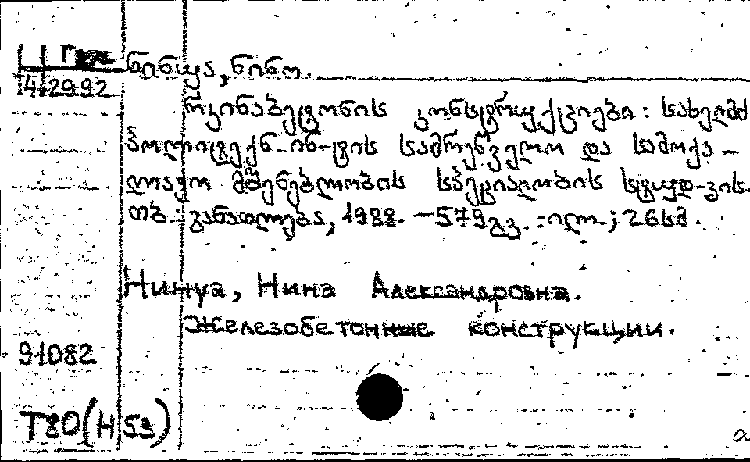 4.29.92
ნინუა, ნინო.
რკინაბეტონის კონსტრუქციები: სახელმძ
პოლიტექნ. ინ-ტის სამრეწველო და სამოქა-
ლაქო მშენებლობის სპეციალობის სტუდ-ვის.
თბ.: განათლება, 1988. — 579გვ. : ილ.; 26სმ.
Нинуа, Нина Александровна.
Железобетонные конструкции.
91082
Т80(Н53)